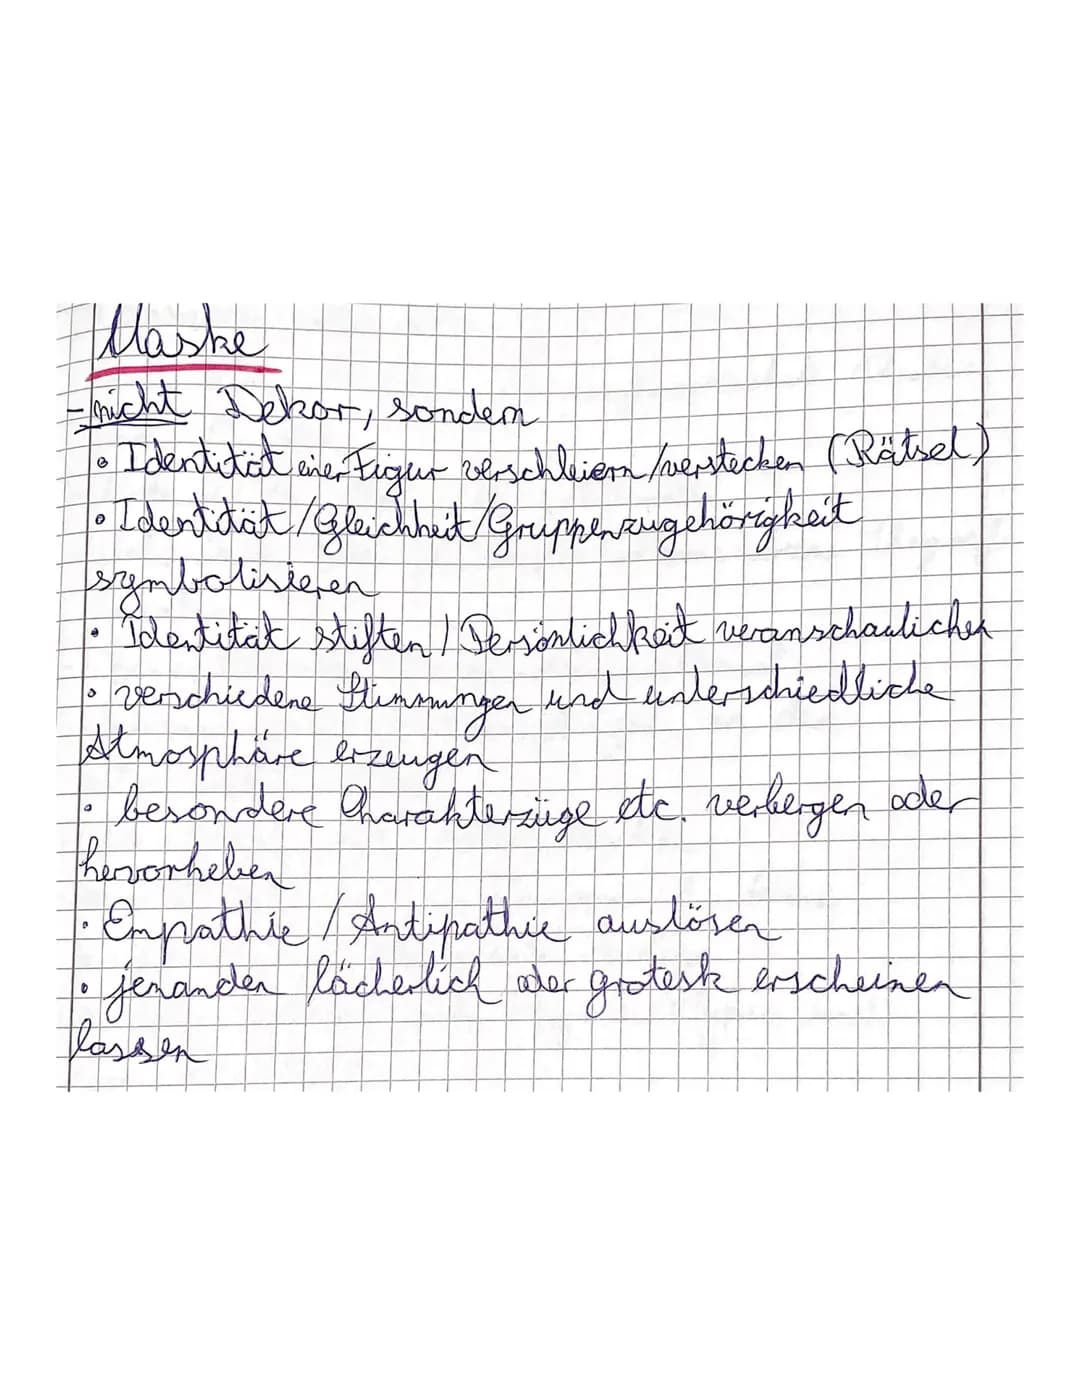 Maske
- nicht Dekor, sondern
• Identität einer Figur verschleiern/verstecken (Rätsel)
• Identität/Gleichheit/Gruppenzugehörigkeit
symbolisieren
• Identität stiften / Persönlichkeit veranschaulichen
• verschiedene Stimmungen und unterschiedliche
Atmosphäre erzeugen
• besondere Charakterzüge etc. verbergen oder
hervorheben
• Empathie / Antipathie auslösen
• jemanden lächerlich oder grotesk erscheinen
lassen